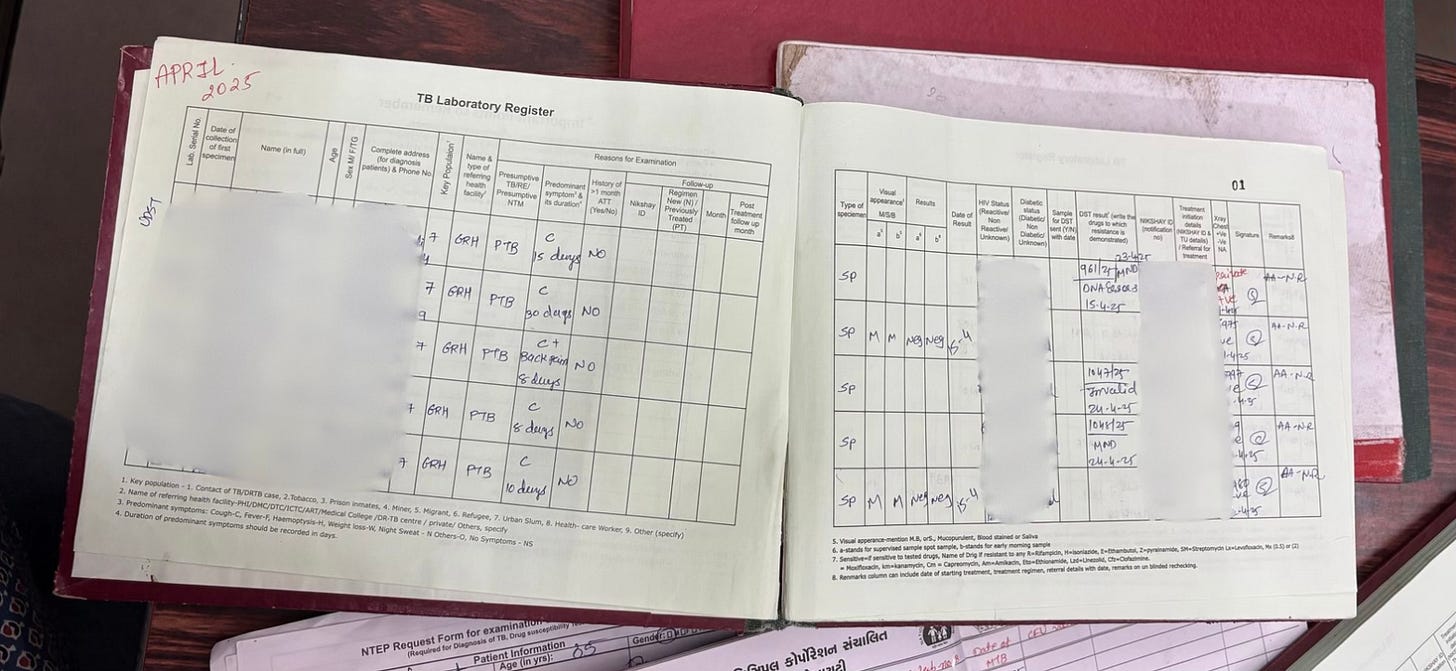 APRIL
2025
TB Laboratory Register
Lab. Serial No.
Date of collection of first specimen
Name (in full)
Age
Sex M/ F/TG
Complete address (for diagnosis patients) & Phone No.
Key Populaion¹
Name & type of referring health facility²
Reasons for Examination
Presumptive TB/RE/ Presumptive NTM
Predominant symptom³ & its duration⁴
History of >1 month ATT (Yes/No)
Follow-up
Nikshay ID
Regimen New (N) / Previously Treated (PT)
Month
Post Treatment follow up month
7 GRH PTB C 15 days NO
7 GRH PTB C 30 days NO
7 GRH PTB C+ Back pain 8 days NO
7 GRH PTB C 8 days NO
7 GRH PTB C 10 days NO
1. Key population - 1. Contact of TB/DRTB case, 2.Tobacco, 3. Prison inmates, 4. Miner, 5. Migrant, 6. Refugee, 7. Urban Slum, 8. Health- care Worker, 9. Other (specify)
2. Name of referring health facility-PHI/DMC/DTC/ICTC/ART/Medical College /DR-TB centre / private/ Others, specify
3. Predominant symptoms: Cough-C, Fever-F, Haemoptysis-H, Weight loss-W, Night Sweat - N Others-O, No Symptoms - NS
4. Duration of predominant symptoms should be recorded in days.
01
Type of specimen
Visual appearance⁵
M/S/B
a⁶ b⁶
Results
a⁶ b⁶
Date of Result
HIV Status (Reactive/ Non Reactive/ Unknown)
Diabetic status (Diabetic/ Non Diabetic/ Unknown)
Sample for DST sent (Y/N) with date
DST result⁷ (write the drugs to which resistance is demonstrated)
NIKSHAY ID (notification no)
Treatment initiation details (NIKSHAY ID & TU details) / Referral for treatment
Xray Chest +Ve -Ve NA
Signature
Remarks8
23-4-25
SP 961/25 MND
15-4-25
AA-N.R
SP M M Neg Neg AA-N.R
SP 1047/25 Invalid 24-4-25 AA-N.R
SP 1048/25 MND 24-4-25 AA-N.R
SP M M Neg Neg AA-N.R
5. Visual apperance-mention M.B, orS., Mucopurulent, Blood stained or Saliva
6. a-stands for supervised sample spot sample, b-stands for early morning sample
7. Sensitive=if sensitive to tested drugs, Name of Drig if resistant to any R=Rifampicin, H=isoniazide, E=Ethambutol, Z=pyrainamide, SM=Streptomycin Lx=Levofloxacin, Mx (0.5) or (2)
= Moxifloxacin, km=kanamycin, Cm = Capreomycin, Am=Amikacin, Eto=Ethionamide, Lzd=Linezolid, Cfz=Clofazimine.
8. Renmarks column can include date of starting treatment, treatment regimen, reterral details with date, remarks on un blinded rechecking.
NTEP Request Form for examination
(Required for Diagnosis of TB, Drug susceptibility
Patient Information
Age (in yrs): 05
Gender:
કોર્પોરેશન સંચાલિત
Date of
MTB